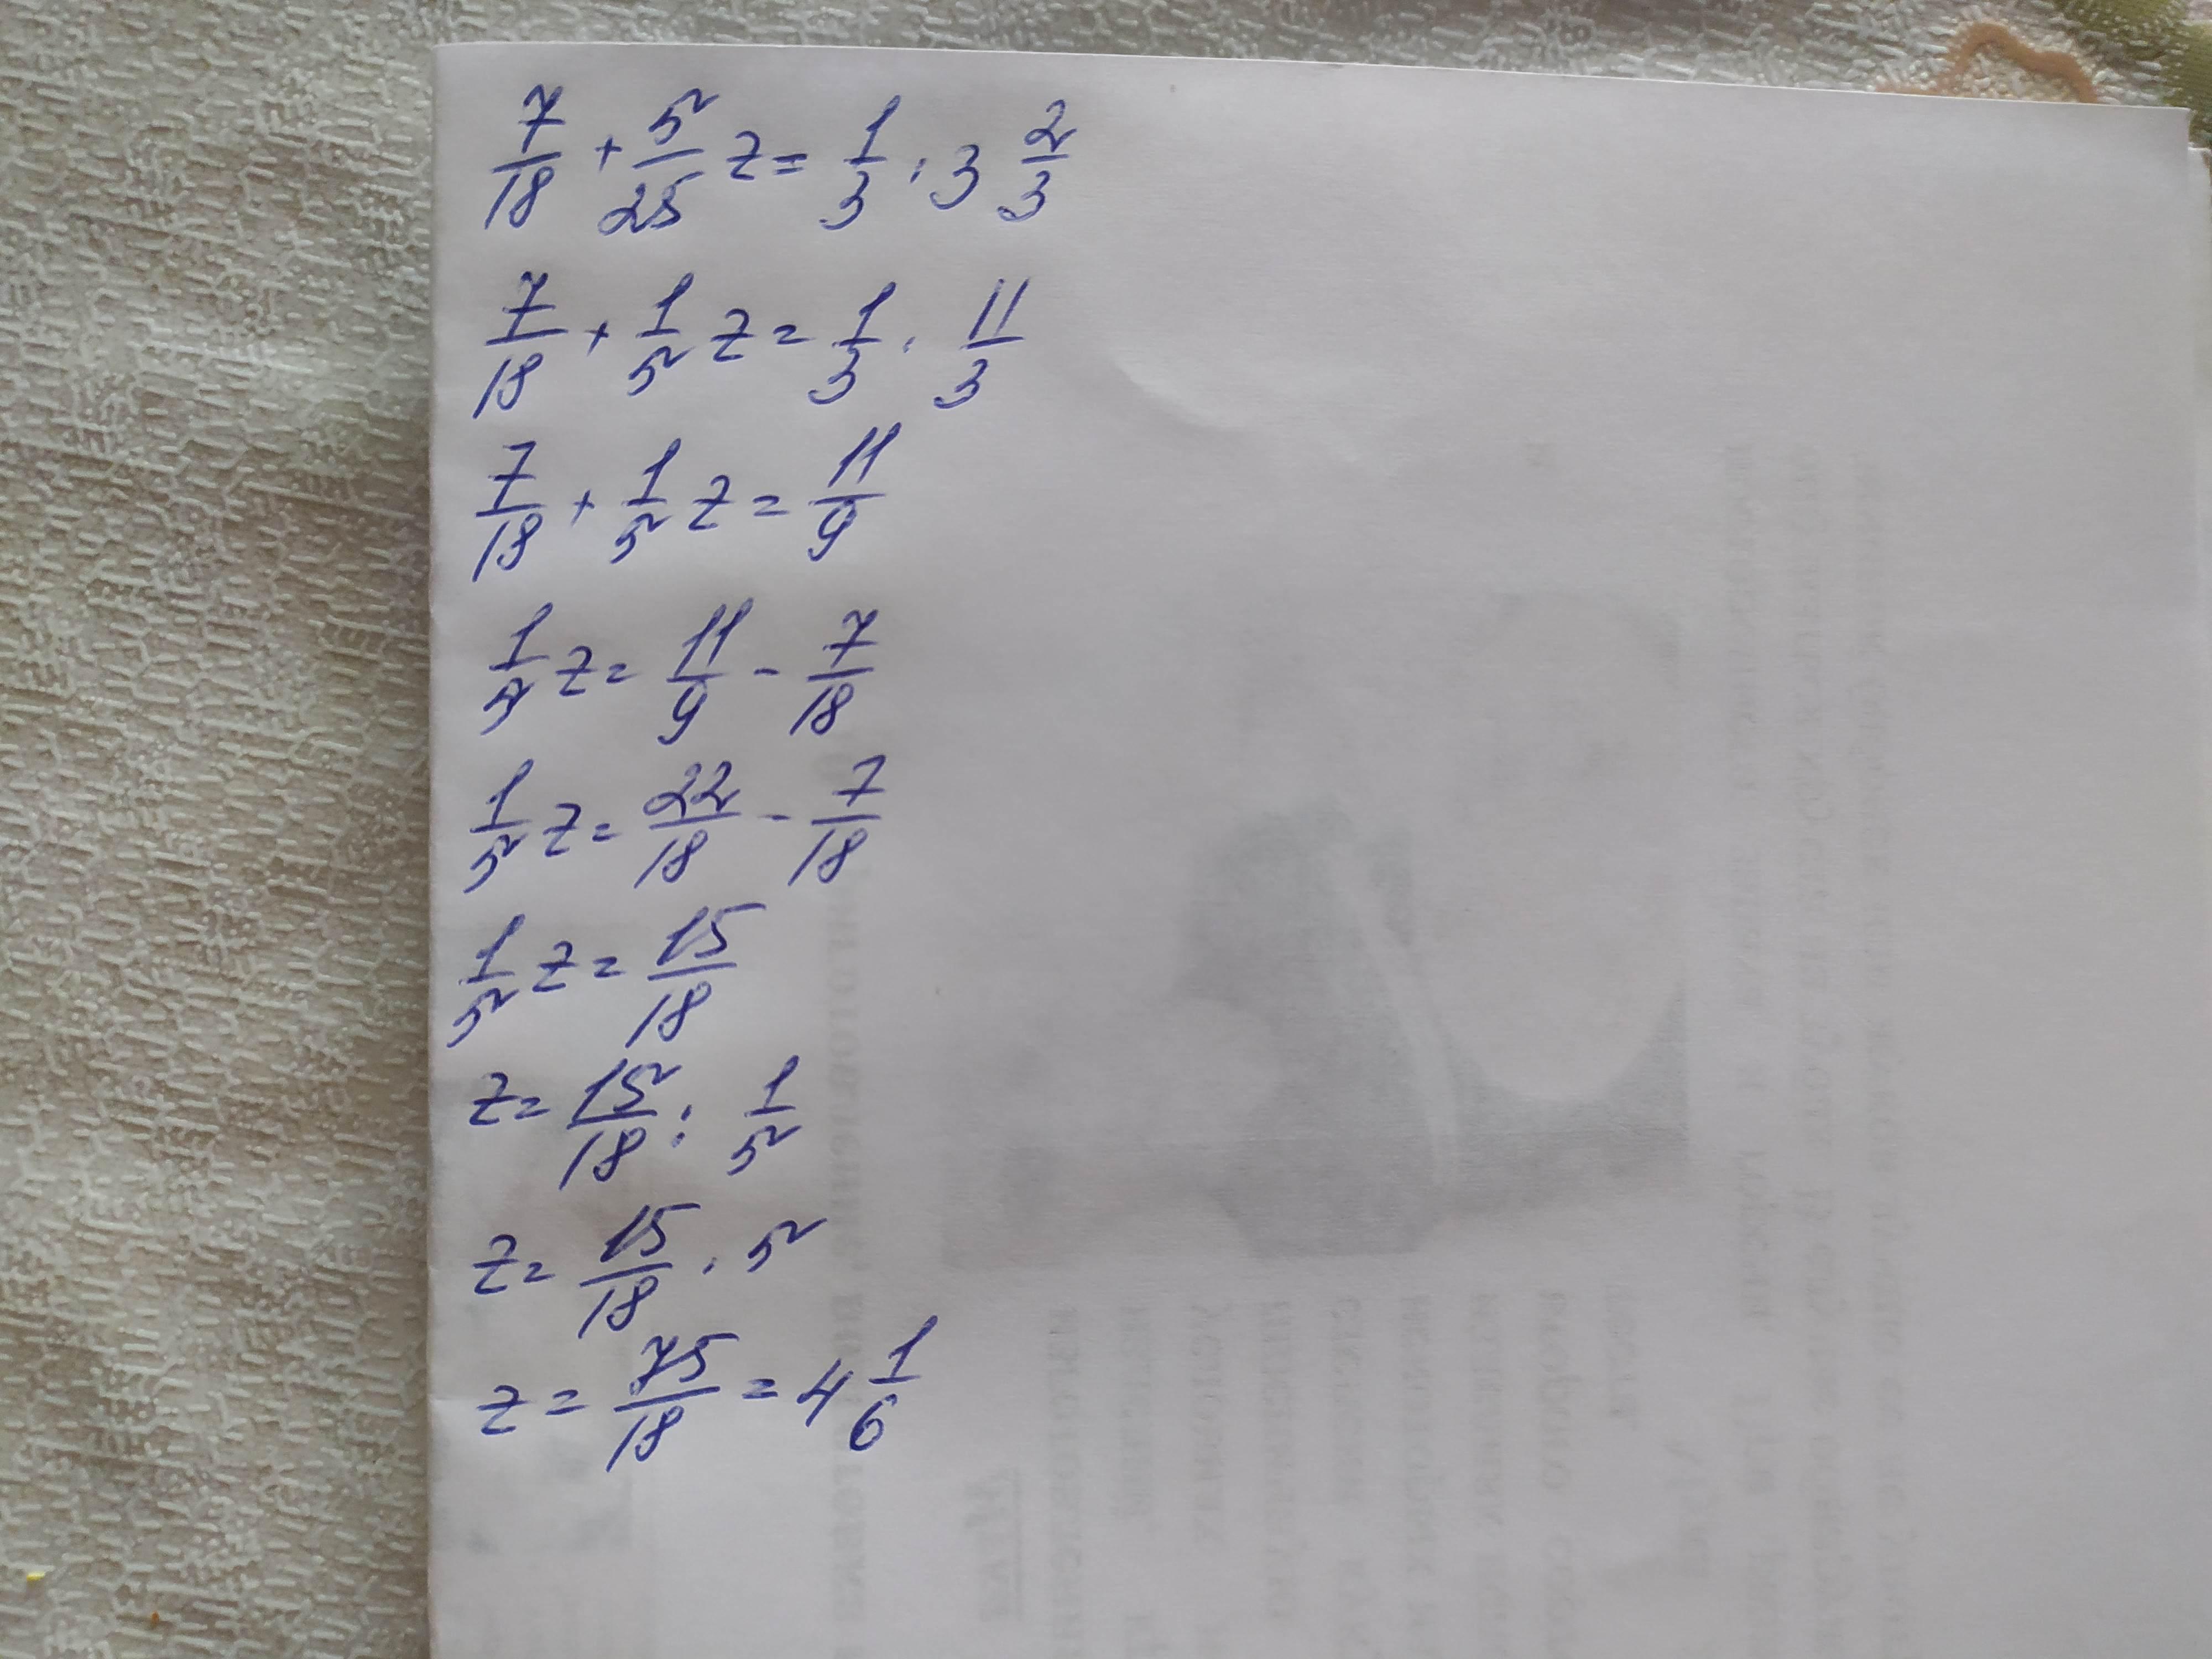 7/18 + 5/25 z = 1/3 · 3 2/3
7/18 + 1/5 z = 1/3 · 11/3
7/18 + 1/5 z = 11/9
1/5 z = 11/9 - 7/18
1/5 z = 22/18 - 7/18
1/5 z = 15/18
z = 15/18 : 1/5
z = 15/18 · 5
z = 75/18 = 4 1/6